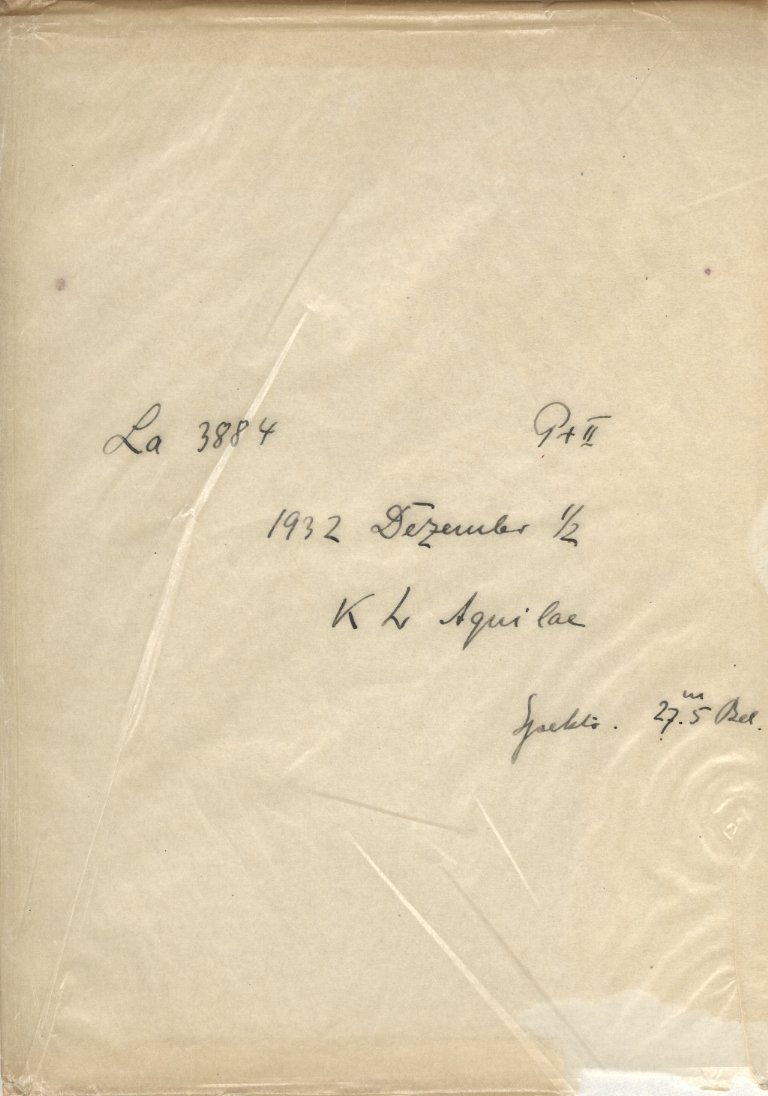 La 3884 P+II
1932 Dezember 1/2
K L Aquilae
Spektr. 27.5 m Bel.